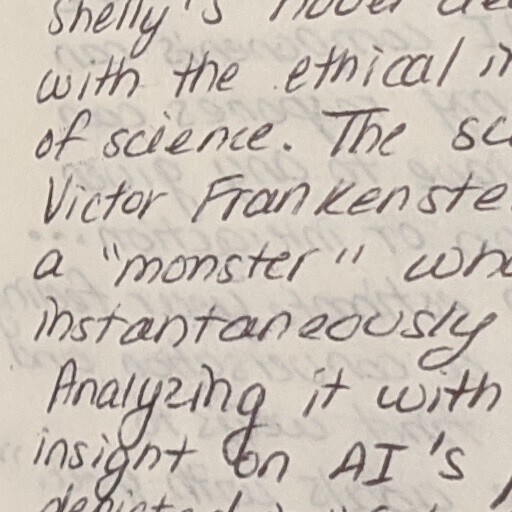 Shelly's novel
with the ethical
of science. The
Victor Frankenste
a "monster" who
instantaneously
Analyzing it with
insight on AI's
depicted